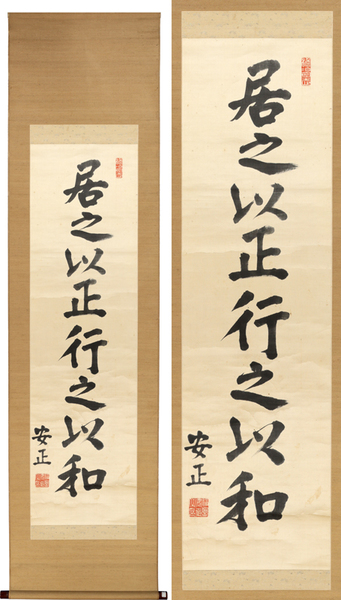 居之以正行之以和
安正
居之以正行之以和
安正